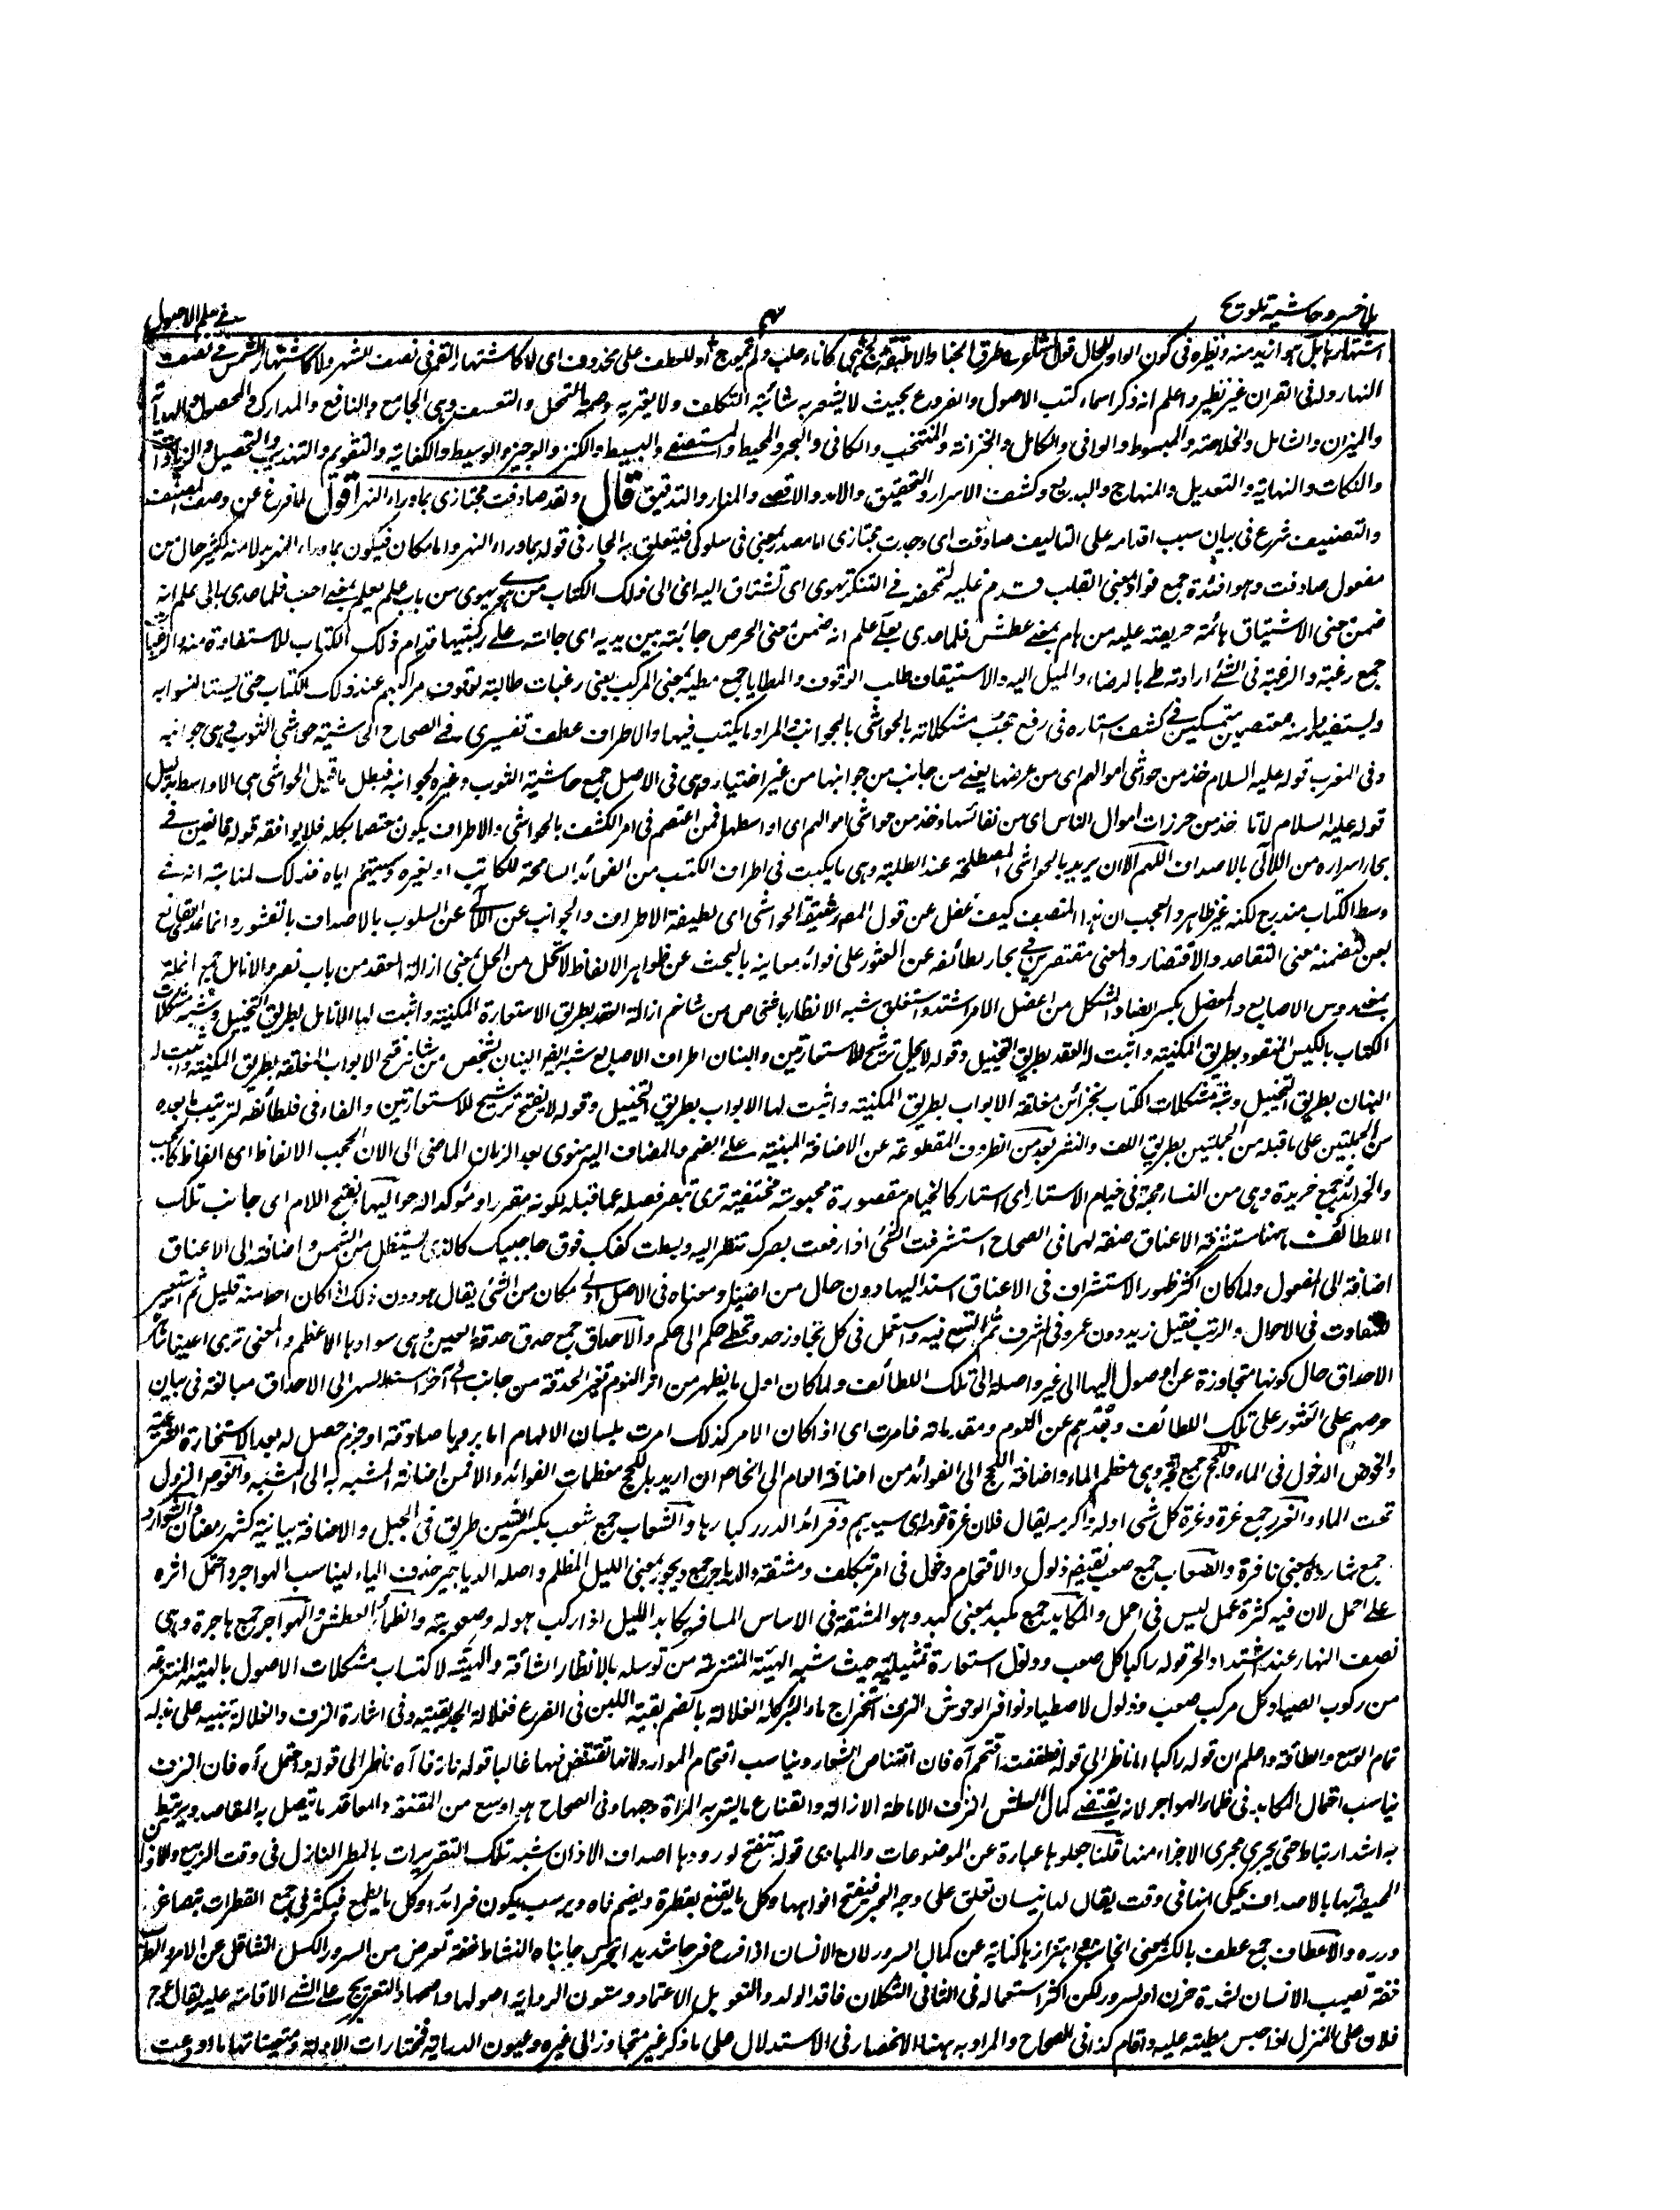 ملا خسرو حاشية تلويح
۴
في علم الاصول
اشتهارها بل هو ازيد منه ونظيره في كون الواو للحال قول اى لا كاشتهار القمر في نصف الشهر ولا كاشتهار الشمس في نصف
النهار وله في القران غير نظير واعلم انه ذكر اسماء كتب الاصول والفروع بحيث لا يشعر به شائبة التكلف ولا يعتريه وصمة التمحل والتعسف وهي الجامع والنافع والمدارك والمحصول والهداية
والميزان والشامل والخلاصة والمبسوط والوافي والكامل والخزانة والمنتخب والكافي والبحر والمحيط والمستصفى والبسيط والكنز والوجيز والوسيط والكفاية والتقويم والتهذيب والتحصيل والزيادات
والنكات والنهاية والتعديل والمنهاج والبديع وكشف الاسرار والتحقيق والامد والاقصى والمنار والتدقيق قال ولقد صادفت مجتازى بماوراء النهر اقول لما فرغ عن وصف المصنف
والتصنيف شرع في بيان سبب اقدامه على التاليف صادفت اى وجدت مجتازى اما مصدر بمعنى في سلوكى فيتعلق به الجار في قوله بماوراء النهر واما مكان فيكون بماوراء النهر بدلا منه لكثير حال من
مفعول صادفت وهو افئدة جمع فؤاد بمعنى القلب قدم عليه لتمحضه في التنكر تهوى اى تشتاق اليه اى الى ذلك الكتاب من هوى يهوى من باب علم يعلم بمعنى احب فلما عدى بالى علم انه
ضمن معنى الاشتياق هائمة حريصة عليه من هام بمعنى عطش فلما عدى بعلى علم انه ضمن معنى الحرص جاثية بين يديه اى جالسة على ركبتيها قدام ذلك الكتاب للاستفادة منه والرغبات
جمع رغبة والرغبة في الشئ ارادته بالرضاء والميل اليه والاستيقاف طلب الوقوف والمطايا جمع مطية بمعنى المركب يعنى رغبات طالبة لوقوف مراكبهم عند ذلك الكتاب حتى يستانسوا به
ويستفيدوا منه معتصمين متمسكين في كشف استاره في رفع حجب مشكلاته بالحواشى بالجوانب والمراد ما يكتب فيها والاطراف عطف تفسيرى في الصحاح الحاشية حواشى الثوب وهى جوانبه
وفي المغرب قوله عليه السلام خذ من حواشى اموالهم اى من عرضها يعنى من جانب من جوانبها من غير اختيار وهى في الاصل جمع حاشية الثوب وغيره لجوانبه فبطل ما قيل الحواشى هى الاواسط بدليل
قوله عليه السلام لا تاخذ من حرزات اموال الناس اى من نفائسها وخذ من حواشى اموالهم اى اواسطها فمن اعتصم في امر الكشف بالحواشى والاطراف يكون معتصما بكله فلا يوافقه قوله قانعين في
بحار اسراره من اللآلى بالاصداف اللهم الا ان يريد بالحواشى المصطلحة عند الطلبة وهى ما يكتب في اطراف الكتب من الفوائد السانحة للكاتب او لغيره وتسميتهم اياه فذلك لمناسبة انه في
وسط الكتاب مندرج لكنه غير ظاهر والعجب ان هذا المتعسف كيف غفل عن قول المصنف رشيقة الحواشى اى لطيفة الاطراف والجوانب عن اللآلى عن المسلوب بالاصداف بالقشور وانما عدى القانع
بعن لتضمنه معنى التقاعد والاقتصار والمعنى مقتصرين في بحار لطائفه عن العثور على فوائد معانيه بالبحث عن ظواهر الالفاظ لا تحل من الحل بمعنى ازالة العقد من باب نصر والانامل جمع انملة
بمعنى رؤس الاصابع والمعضل بكسر الضاد المشكل من اعضل الامر اشتد واستغلق شبه الانظار باشخاص من شانهم ازالة العقد بطريق الاستعارة المكنية واثبت لها الانامل بطريق التخييل وشبه مشكلات
الكتاب بالكيس المعقود بطريق المكنية واثبت له العقد بطريق التخييل وقوله لا يحل ترشيح للاستعارتين والبنان اطراف الاصابع شبه البيان بشخص من شانه فتح الابواب المغلقة بطريق المكنية واثبت له
البنان بطريق التخييل وشبه مشكلات الكتاب بخزائن مغلقة الابواب بطريق المكنية واثبت لها الابواب بطريق التخييل وقوله لا يفتح ترشيح للاستعارتين والفاء في فلطائفه لترتيب ما بعده
من الجملتين على ما قبله من الجملتين بطريق اللف والنشر بعد من الظروف المقطوعة عن الاضافة المبنية على الضم والمضاف اليه منوى بعد الزمان الماضى الى الان حجب الالفاظ اى الفاظ كالحجب
والخرائد جمع خريدة وهى من النساء في خيام الاستار اى استار كالخيام مقصورة محبوسة مختفية ترى تبصر فصله عما قبله لكونه مقررا ومؤكدا له حواليها بفتح اللام اى جانب تلك
اللطائف همما مستشرفة الاعناق صفة لهما في الصحاح استشرفت الشئ اذا رفعت بصرك تنظر اليه وبسطت كفك فوق حاجبيك كالذى يستظل من الشمس واضافته الى الاعناق
اضافة الى المفعول ولما كان اكثر ظهور الاستشراف في الاعناق اسند اليها دون حال من اضيل ومعناه في الاصل ادنى مكان من الشئ يقال هو دون ذلك اذا كان احط منه قليل ثم استعير
للتفاوت في الاحوال والرتب فقيل زيد دون عمرو في الشرف ثم اتسع فيه واستعمل في كل تجاوز حد وتخطى حكم الى حكم والاحداق جمع حدق حدقة العين وهى سوادها الاعظم والمعنى ترى اعينا ساهرة
الاحداق حال كونها متجاوزة عن الوصول اليها الى غير واصلة الى تلك اللطائف ولما كان اول ما يظهر من اثر النوم تغير الحدقة من جانب الى آخر اسند السهر الى الاحداق مبالغة في بيان
حرصهم على العثور على تلك اللطائف وبعدهم عن النوم ومقدماته فامرت اى اذا كان الامر كذلك امرت بلسان الالهام اما برؤيا صادقة او جزم حصل له بعد الاستخارة الشرعية
والخوض الدخول في الماء واللجج جمع لجة وهى معظم الماء واضافة اللجج الى الفوائد من اضافة العام الى الخاص ان اريد باللجج معظمات الفوائد والا فمن اضافة المشبه به الى المشبه والغوص النزول
تحت الماء والغرر جمع غرة وغرة كل شى اوله واكرمه يقال فلان غرة قومه اى سيدهم وفرائد الدرر كبارها والشعاب جمع شعب بكسر الشين طريق في الجبل والاضافة بيانية كشهر رمضان والشوارد
جمع شاردة بمعنى نافرة والصعاب جمع صعب نقيض ذلول والاقتحام دخول في امر بتكلف ومشقة والدياجر جمع ديجور بمعنى الليل المظلم واصله الدياجير حذف الياء ليناسب الهواجر واحتمل اثره
على احمل لان فيه كثرة عمل ليس في احمل والمكابد جمع مكبد بمعنى كبد وهو المشقة في الاساس المسافر يكابد الليل اذا ركب هوله وصعوبته والظمأ العطش والهواجر جمع هاجرة وهى
نصف النهار عند اشتداد الحر قوله راكبا كل صعب وذلول استعارة تمثيلية حيث شبه الهيئة المنتزعة من توسله بالانظار الشاقة والهينة لاكتساب مشكلات الاصول بالهيئة المنتزعة
من ركوب الصياد كل مركب صعب وذلول لاصطياد نوافر الوحوش النزف استخراج ماء البئر كله الغلالة بالضم بقية اللبن في الضرع فغلالة الجد بقيته وفي اعارة النزف والغلالة تنبيه على بذله
تمام الوسع والطاقة واعلم ان قوله راكبا اما ناظر الى قوله فطفقت اقتحم آه فان اقتناص الشوارد يناسب اقتحام الموارد ولانها تقتنص فيها غالبا قوله نازفا آه ناظر الى قوله واحتمل آه فان النزف
يناسب احتمال المكابد في ظماء الهواجر لانه يقتضى كمال العطش النزف الاماطة الازالة والقناع ما يستر به المرأة وجهها وفي الصحاح هو اوسع من المقنعة والمعاقد ما يتصل به المقاصد ويرتبطن
به اشد ارتباط حتى يجرى مجرى الاجزاء منها قلنا جعلوها عبارة عن الموضوعات والمبادى قوله تنفتح لورودها اصداف الاذان شبه تلك التقريرات بالمطر النازل في وقت الربيع والاذان
المحيطة بها بالاصداف يحكى انها في وقت يقال لها نيسان تعلق على وجه البحر فيفتح افواهها وكل ما يقنع بقطرة ويضم فاه ويرسب يكون فرائد وكل ما يطمع فيكثر في جمع القطرات يتصاغر
درره والاعطاف جمع عطف بالكسر بمعنى الجانب واهتزازها كناية عن كمال السرور لان الانسان اذا فرح فرحا شديدا تحرك جانباه النشاط خفة تعرض من السرور الكسل التثاقل عن الامور الطرب
خفة تصيب الانسان لشدة حزن او لسرور لكن اكثر استعماله في الثانى الثكلان فاقد الولد والتعويل الاعتماد ومتون الرواية اصولها وعمادها التعريج على الشئ الاقامة عليه يقال عرج
فلان على المنزل اذا حبس مطيته عليه واقام كذا في الصحاح والمراد به ههنا الانحصار في الاستدلال على ما ذكر غير متجاوز الى غيره وعيون الدراية مختارات الادلة ومتعيناتها ما اودعت